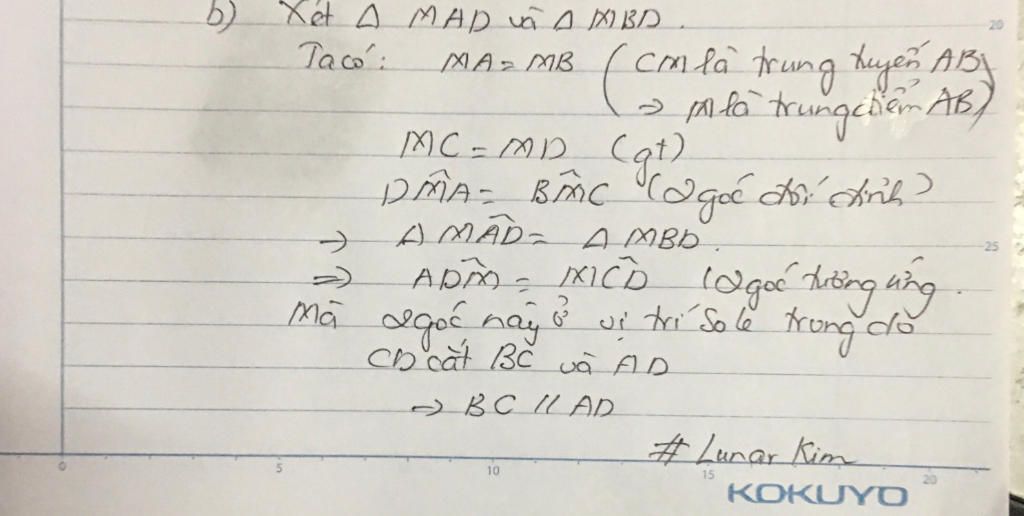 b) Xét Δ MAD và Δ MBD.
Ta có: MA = MB (CM là trung tuyến AB)
→ M là trung điểm AB)
MC = MD (gt)
DM̂A = BM̂C (2 góc đối đỉnh)
→ Δ MAD̂ = Δ MBD.
⇒ ADM̂ = MCD̂ (2 góc tường ứng.
Mà 2 góc này ở vị trí so le trong do
CD cắt BC và AD
→ BC // AD
# Lunar Kim
KOKUYO
0 5 10 15 20
20
25